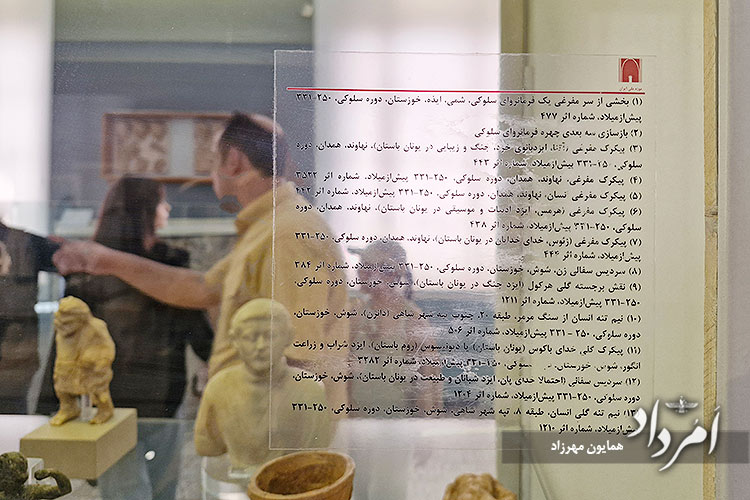 موزه ملی ایران
(۱) بخشی از سر مفرغی یک فرمانروای سلوکی، شمی، ایذه، خوزستان، دوره سلوکی، ۲۵۰-۳۳۱
پیش‌ازمیلاد، شماره اثر ۴۷۷
(۲) بازسازی سه بعدی چهره فرمانروای سلوکی
(۳) پیکرک مفرغی (آتنا، ایزدبانوی خرد، جنگ و زیبایی در یونان باستان)، نهاوند، همدان، دوره
سلوکی، ۲۵۰-۳۳۱ پیش‌ازمیلاد، شماره اثر ۴۴۳
(۴) پیکرک مفرغی، نهاوند، همدان، دوره سلوکی، ۲۵۰-۳۳۱ پیش‌ازمیلاد، شماره اثر ۳۵۳۲
(۵) پیکرک مفرغی انسان، نهاوند، همدان، دوره سلوکی، ۲۵۰-۳۳۱ پیش‌ازمیلاد، شماره اثر ۴۴۲
(۶) پیکرک مفرغی (هرمس، ایزد ادبیات و موسیقی در یونان باستان)، نهاوند، همدان، دوره
سلوکی، ۲۵۰-۳۳۱ پیش‌ازمیلاد، شماره اثر ۴۳۸
(۷) پیکرک مفرغی (زئوس، خدای خدایان در یونان باستان)، نهاوند، همدان، دوره سلوکی، ۲۵۰-۳۳۱
پیش‌ازمیلاد، شماره اثر ۴۴۴
(۸) سردیس سفالی زن، شوش، خوزستان، دوره سلوکی، ۲۵۰-۳۳۱ پیش‌ازمیلاد، شماره اثر ۳۸۴
(۹) نقش برجسته گلی هرکول (ایزد جنگ در یونان باستان)، شوش، خوزستان، دوره سلوکی،
۲۵۰-۳۳۱ پیش‌ازمیلاد، شماره اثر ۱۲۱۱
(۱۰) نیم تنه انسان از سنگ مرمر، طبقه ۲۰، جنوب تپه شهر شاهی (دائرن)، شوش، خوزستان،
دوره سلوکی، ۲۵۰ - ۳۳۱ پیش‌ازمیلاد، شماره اثر ۵۰۶
(۱۱) پیکرک گلی خدای باکوس (یونان باستان) یا دیونیسوس (روم باستان)، ایزد شراب و زراعت
انگور، شوش، خوزستان، سلوکی، پیش‌ازمیلاد، شماره اثر ۳۲۸۲
(۱۲) سردیس سفالی (احتمالا خدای پان، ایزد شبانان و طبیعت در یونان باستان)، شوش، خوزستان،
دوره سلوکی، ۲۵۰-۳۳۱ پیش‌ازمیلاد، شماره اثر ۱۲۰۴
(۱۳) نیم تنه گلی انسان، طبقه ۸، تپه شهر شاهی، شوش، خوزستان، دوره سلوکی، ۲۵۰-۳۳۱
پیش‌ازمیلاد، شماره اثر ۱۲۱۰
اَمُرداد
همایون مهرزاد